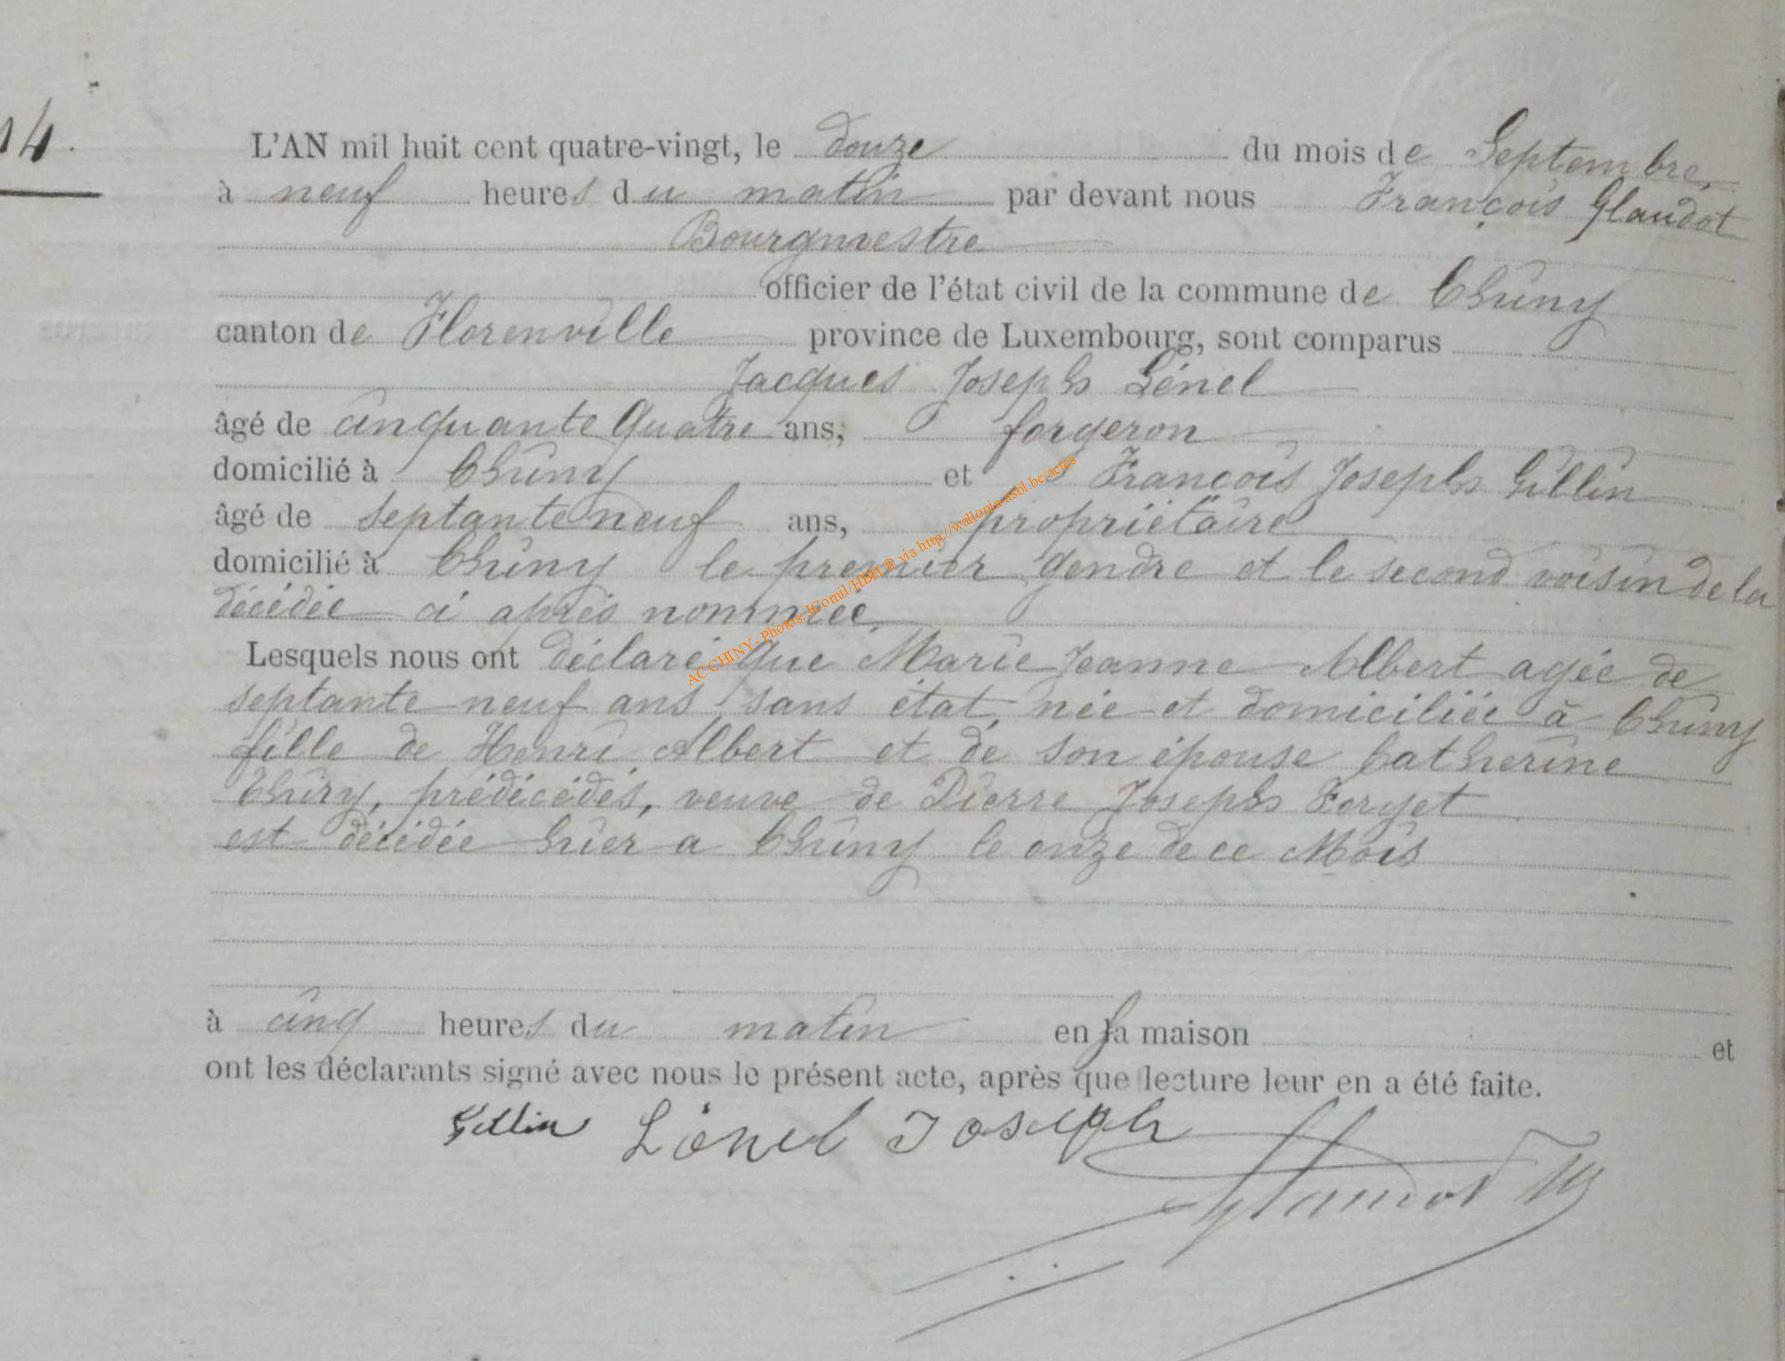 14.
L'AN mil huit cent quatre-vingt, le douze du mois de Septembre,
à neuf heures du matin par devant nous François Glaudot
Bourgmestre
officier de l'état civil de la commune de Chiny
canton de Florenville province de Luxembourg, sont comparus
Jacques Joseph Lénel
âgé de cinquante quatre ans, forgeron
domicilié à Chiny et François Joseph Gillin
âgé de septante neuf ans, propriétaire
domicilié à Chiny le premier gendre et le second voisin de la
décédée ci après nommée,
Lesquels nous ont déclaré que Marie Jeanne Albert agée de
septante neuf ans sans état, née et domiciliée à Chiny
fille de Henri Albert et de son épouse Catherine
Thiry, prédécédés, veuve de Pierre Joseph Forget
est décédée hier a Chiny le onze de ce Mois
à cinq heures du matin en sa maison et
ont les déclarants signé avec nous le présent acte, après que lecture leur en a été faite.
Gillin Lénel Joseph
Glaudot
AC CHINY - Photos: JConul/HDH.® via http://wallonia-asbl.be/actes